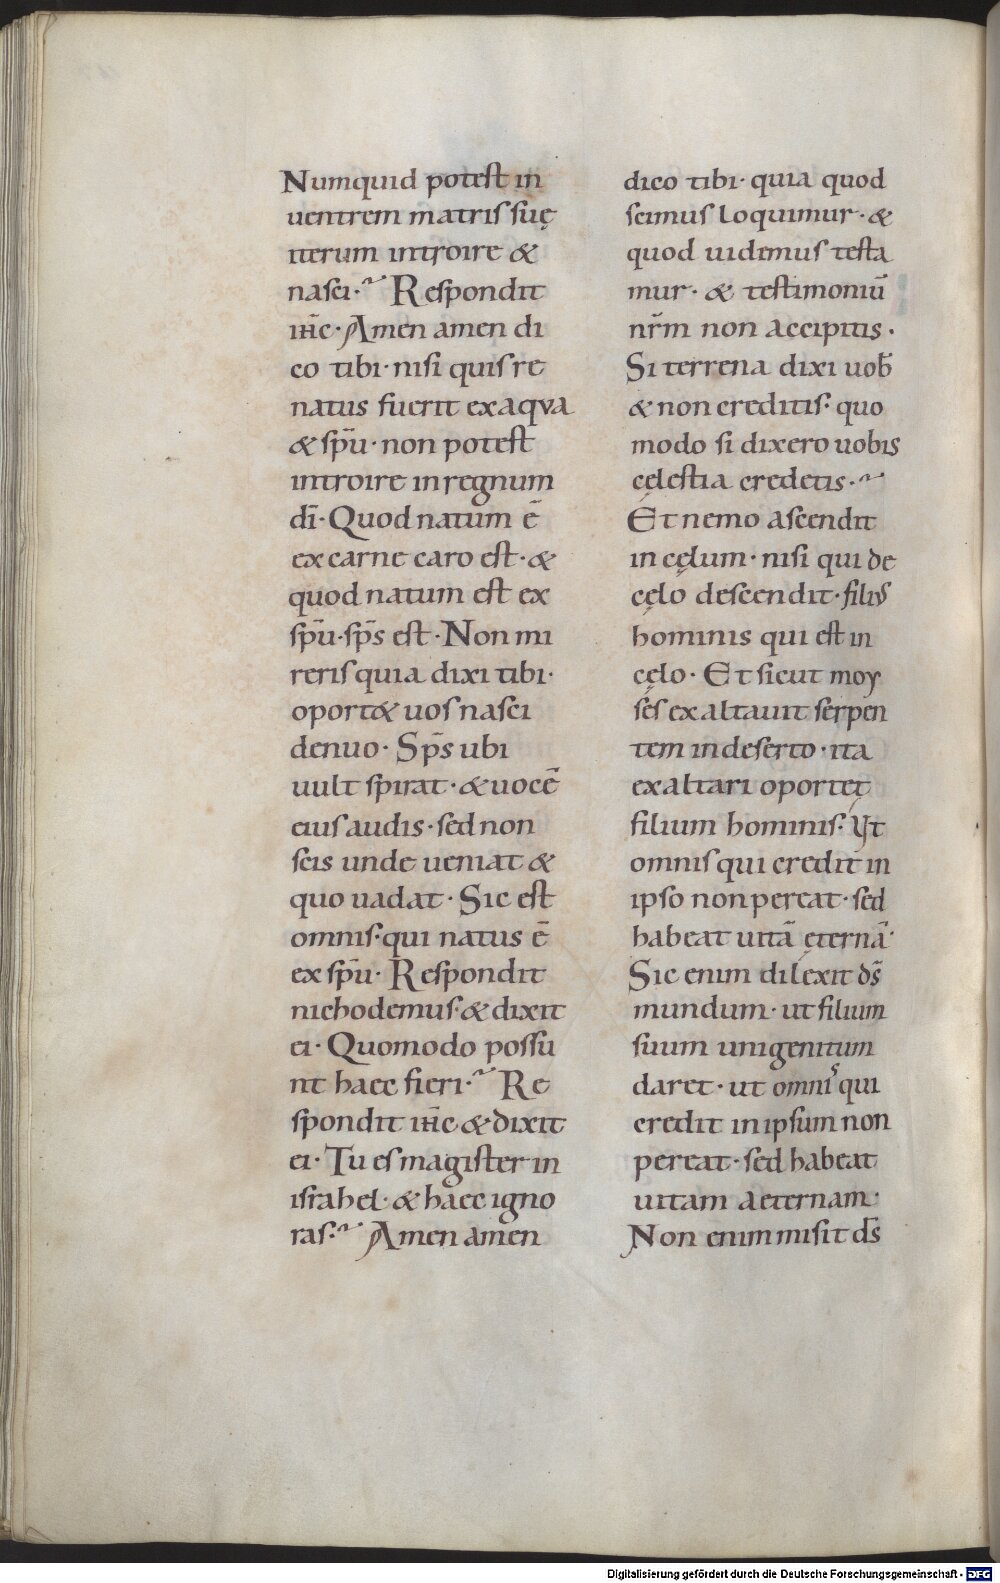 Numquid potest in
uentrem matris suę
iterum introire &
nasci· Respondit
ih̅c· Amen amen di
co tibi· nisi quis re
natus fuerit ex aqva
& sp̅u· non potest
introire in regnum
di̅· Quod natum e̅
ex carne caro est· &
quod natum est ex
sp̅u· sp̅s est· Non mi
reris quia dixi tibi·
oport& uos nasci
denuo· Sp̅s ubi
uult spirat· & uoce̅
eius audis· sed non
scis unde ueniat &
quo uadat· Sic est
omnis· qui natus e̅
ex sp̅u· Respondit
nichodemus· & dixit
ei· Quomodo possu
nt haec fieri· Re
spondit ih̅c & dixit
ei· Tu es magister in
israhel· & haec igno
ras· Amen amen
dico tibi· quia quod
scimus loquimur· &
quod uidemus testa
mur· & testimoniu̅
nr̅m non accipitis·
Si terrena dixi uob̅
& non creditis· quo
modo si dixero uobis
cęlestia credetis·
Et nemo ascendit
in cęlum· nisi qui de
cęlo descendit· filius
hominis qui est in
cęlo· Et sicut moy
ses exaltauit serpen
tem in deserto· ita
exaltari oportet
filium hominis· Ut
omnis qui credit in
ipso non pereat· sed
habeat uita̅ ęterna̅·
Sic enim dilexit ds̅
mundum· ut filium
suum unigenitum
daret· ut omnis qui
credit in ipsum non
pereat· sed habeat
uitam aeternam·
Non enim misit ds̅
Digitalisierung gefördert durch die Deutsche Forschungsgemeinschaft - DFG